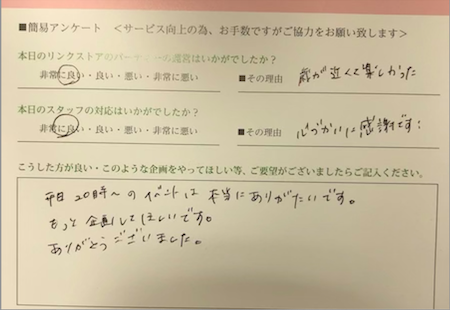 ■簡易アンケート ＜サービス向上の為、お手数ですがご協力をお願い致します＞
本日のリンクストアのパーティーの運営はいかがでしたか？
非常に良い・良い・悪い・非常に悪い ■その理由 歳が近くて楽しかった
本日のスタッフの対応はいかがでしたか？
非常に良い・良い・悪い・非常に悪い ■その理由 心づかいに感謝です！
こうした方が良い・このような企画をやってほしい等、ご要望がございましたらご記入ください。
平日20時〜のイベントは本当にありがたいです。
もっと企画してほしいです。
ありがとうございました。